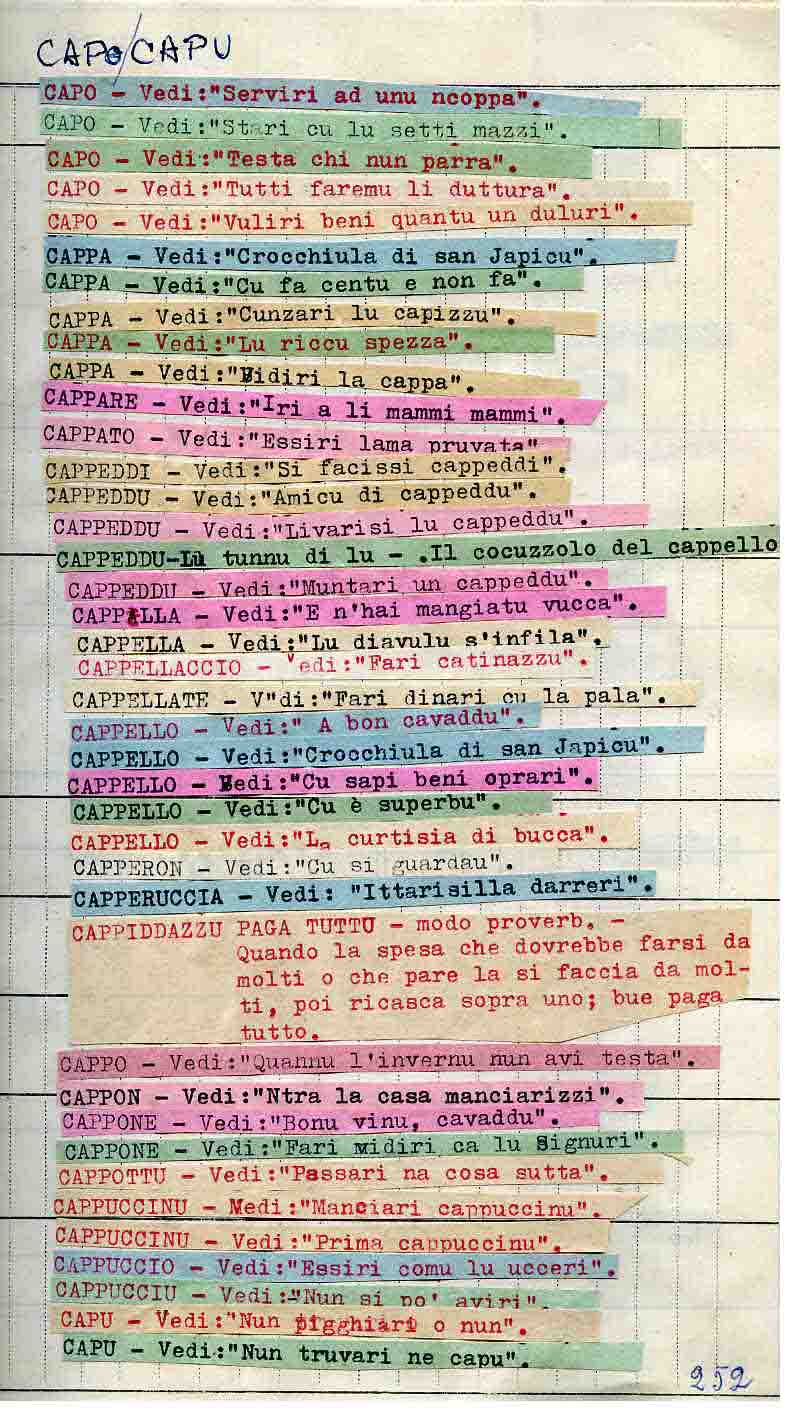 CAPO/CAPU
CAPO - Vedi:"Serviri ad unu ncoppa".
CAPO - Vedi:"Stari cu lu setti mazzi".
CAPO - Vedi:"Testa chi nun parra".
CAPO - Vedi:"Tutti faremu li duttura".
CAPO - Vedi:"Vuliri beni quantu un duluri".
CAPPA - Vedi:"Crocchiula di san Japicu".
CAPPA - Vedi:"Cu fa centu e non fa".
CAPPA - Vedi:"Cunzari lu capizzu".
CAPPA - Vedi:"Lu riccu spezza".
CAPPA - Vedi:"Vidiri la cappa".
CAPPARE - Vedi:"Iri a li mammi mammi".
CAPPATO - Vedi:"Essiri lama pruvata"
CAPPEDDI - Vedi:"Si facissi cappeddi".
CAPPEDDU - Vedi:"Amicu di cappeddu".
CAPPEDDU - Vedi:"Livarisi lu cappeddu".
CAPPEDDU-Lu tunnu di lu - .Il cocuzzolo del cappello
CAPPEDDU - Vedi:"Muntari un cappeddu".
CAPPELLA - Vedi:"E n'hai mangiatu vucca".
CAPPELLA - Vedi:"Lu diavulu s'infila".
CAPPELLACCIO - Vedi:"Fari catinazzu".
CAPPELLATE - V"di:"Fari dinari cu la pala".
CAPPELLO - Vedi:" A bon cavaddu".
CAPPELLO - Vedi:"Crocchiula di san Japicu".
CAPPELLO - Vedi:"Cu sapi beni oprari".
CAPPELLO - Vedi:"Cu è superbu".
CAPPELLO - Vedi:"La curtisia di bucca".
CAPPERON - Vedi:"Cu si guardau".
CAPPERUCCIA - Vedi: "Ittarisilla darreri".
CAPPIDDAZZU PAGA TUTTU - modo proverb. -
Quando la spesa che dovrebbe farsi da
molti o che pare la si faccia da mol-
ti, poi ricasca sopra uno; bue paga
tutto.
CAPPO - Vedi:"Quannu l'invernu nun avi testa".
CAPPON - Vedi:"Ntra la casa manciarizzi".
CAPPONE - Vedi:"Bonu vinu, cavaddu".
CAPPONE - Vedi:"Fari vidiri ca lu Signuri".
CAPPOTTU - Vedi:"Passari na cosa sutta".
CAPPUCCINU - Vedi:"Manciari cappuccinu".
CAPPUCCINU - Vedi:"Prima cappuccinu".
CAPPUCCIO - Vedi:"Essiri comu lu ucceri".
CAPPUCCIU - Vedi:"Nun si po' aviri".
CAPU - Vedi:"Nun pigghiari o nun".
CAPU - Vedi:"Nun truvari ne capu".
252